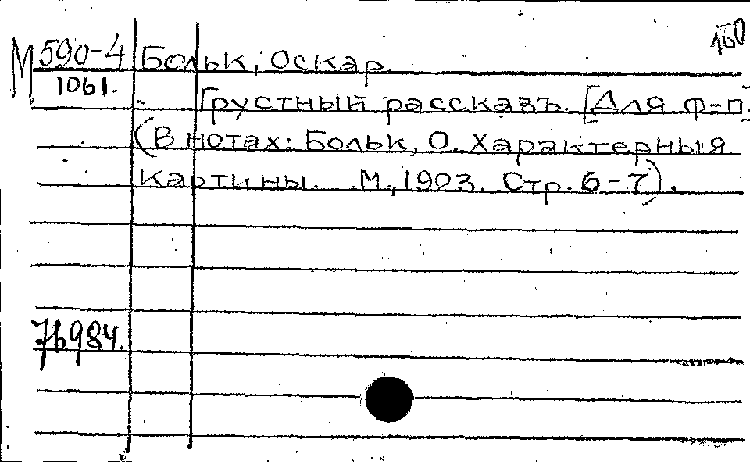 160
М 590-4 Больк, Оскар.
1061.
Грустный рассказъ. [Для ф-п.]
(В нотах: Больк, О. Характерныя
картины. М., 1903. Стр. 6-7).
984.